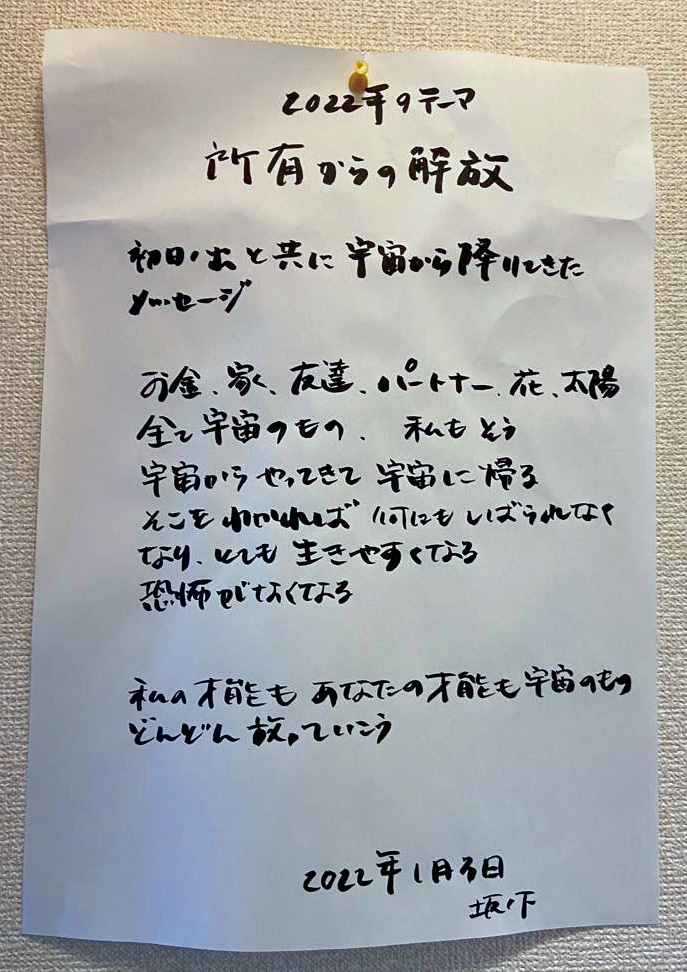 2022年のテーマ
所有からの解放
初日の出と共に宇宙から降りてきた
メッセージ
お金、家、友達、パートナー、花、太陽
全て宇宙のもの、私もそう
宇宙からやってきて宇宙に帰る
そこをわかれば何にもしばられなく
なり、とても生きやすくなる
恐怖がなくなる
私の才能もあなたの才能も宇宙のもの
どんどん放っていこう
2022年1月3日
坂ノ下